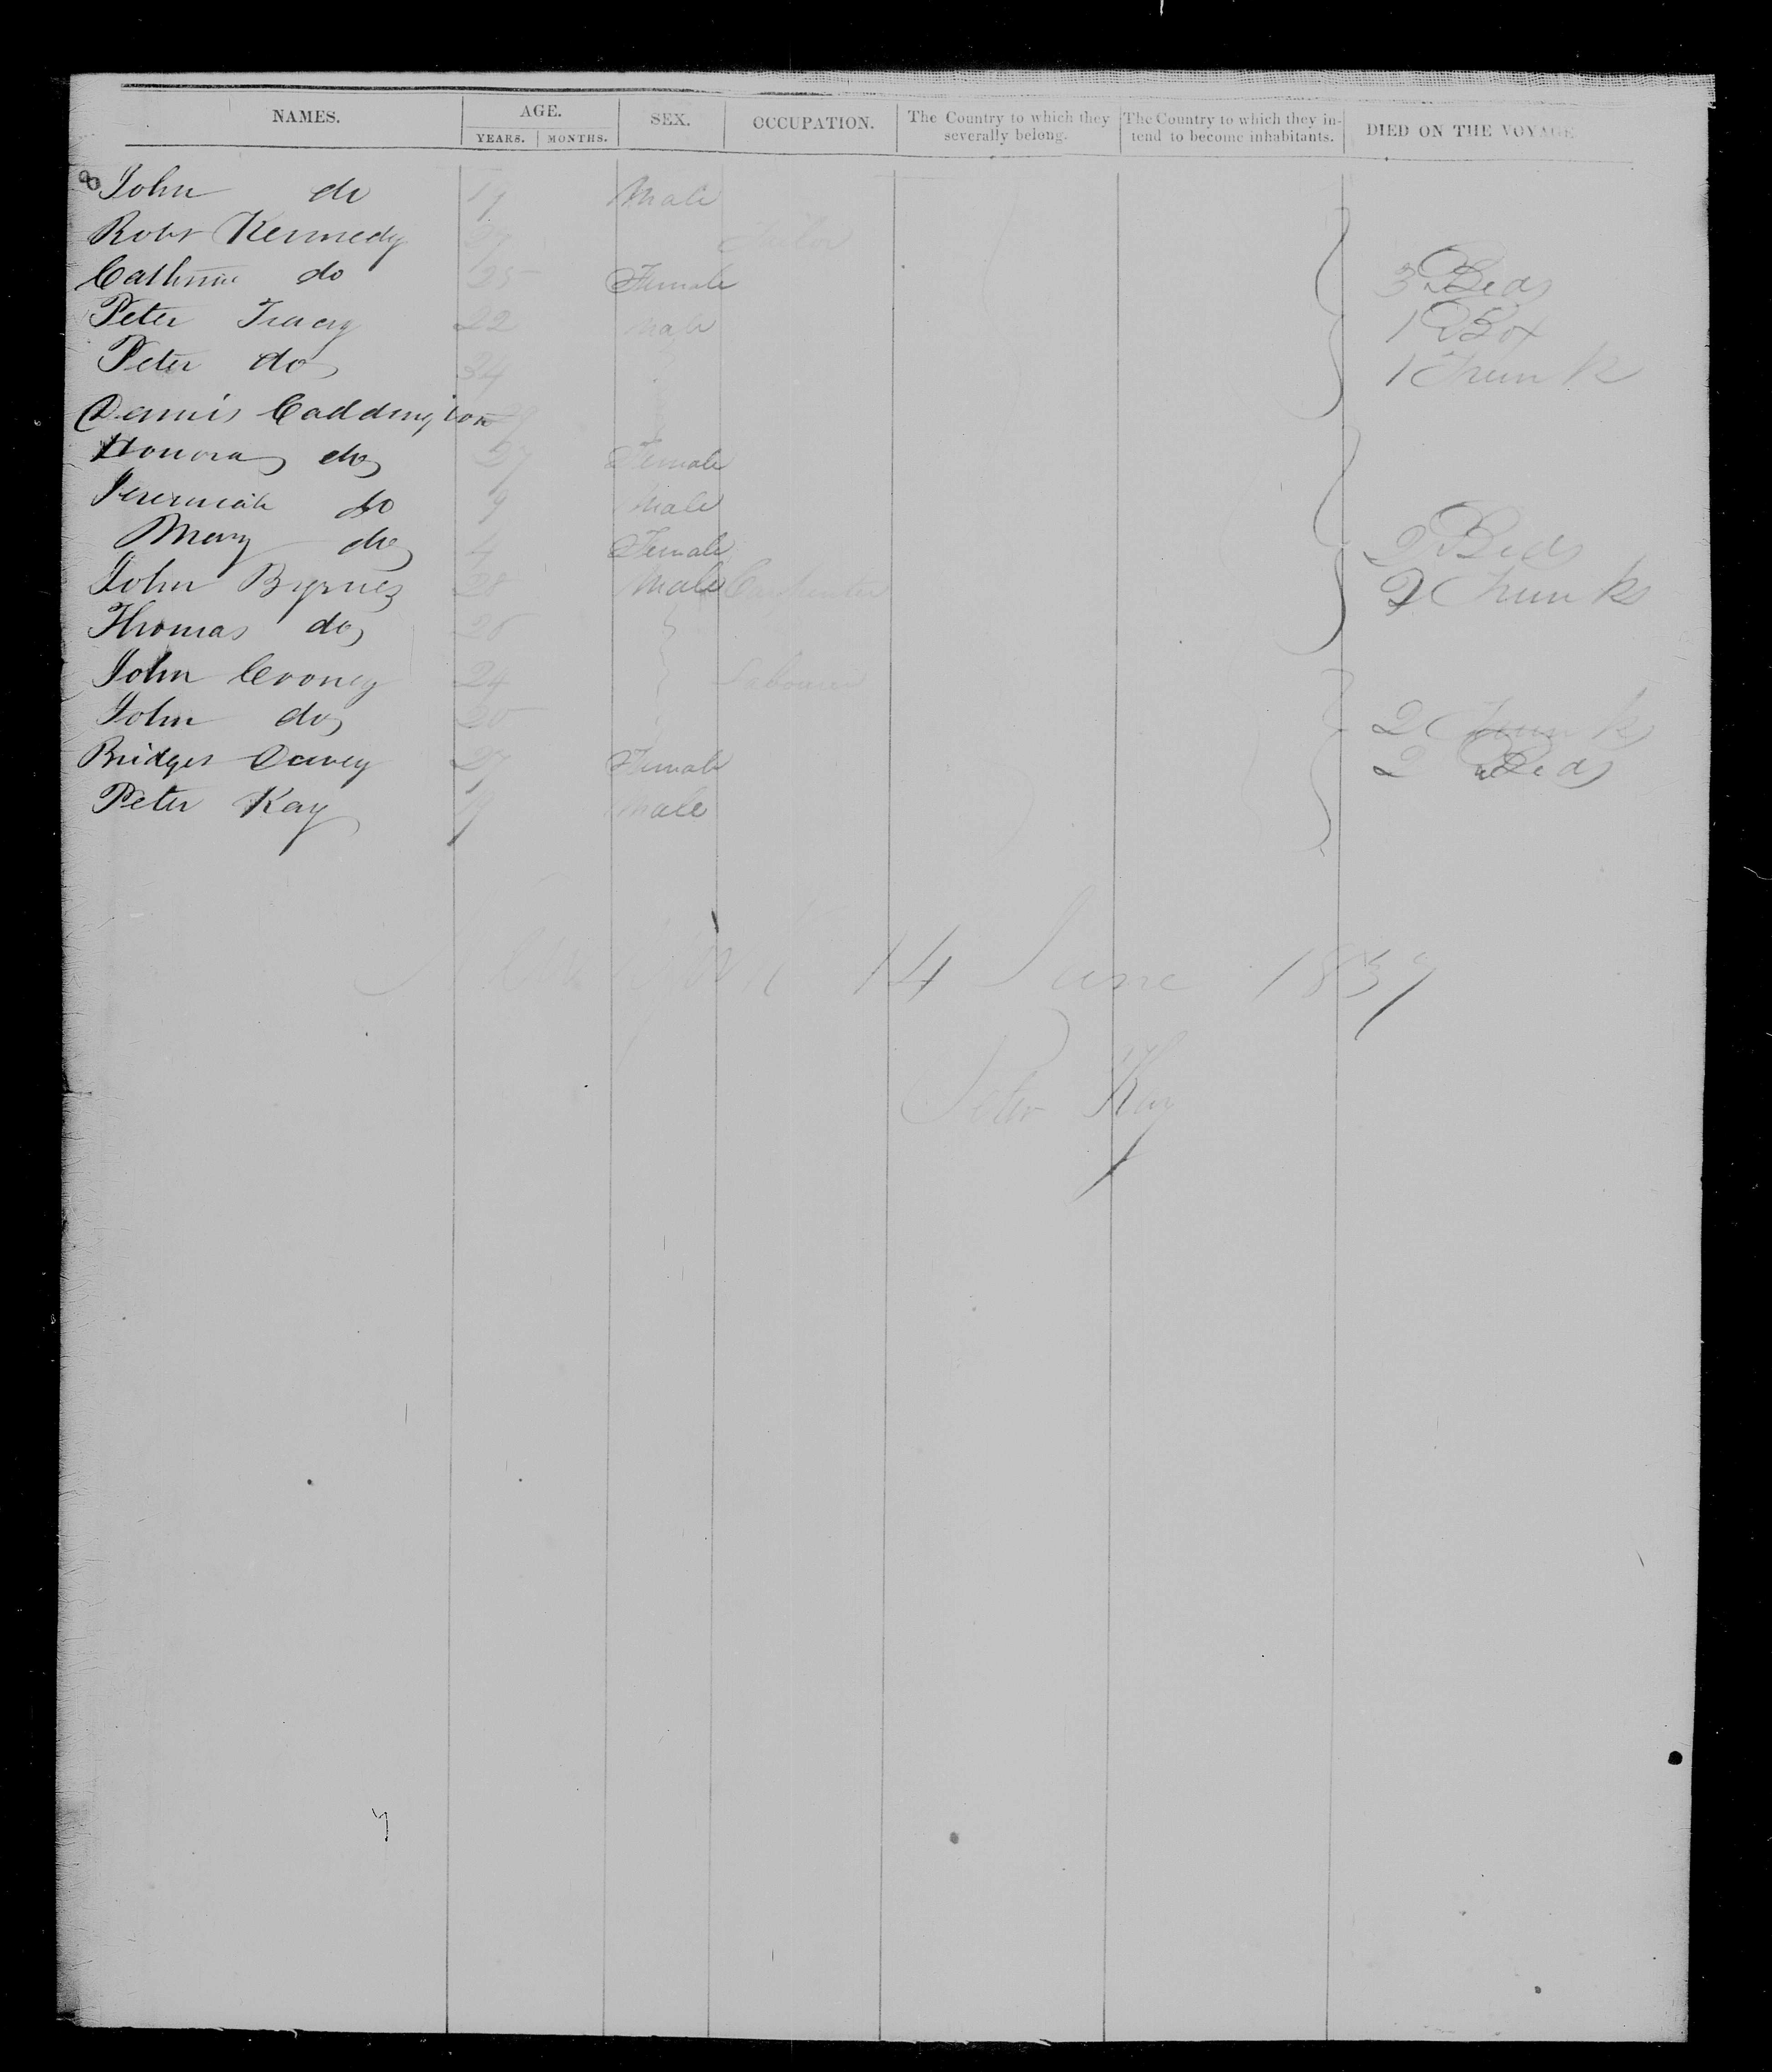 NAMES. AGE. SEX. OCCUPATION. The Country to which they severally belong. The Country to which they in-tend to become inhabitants. DIED ON THE VOYAGE
YEARS. MONTHS.
8 John do 19 Male
Robt Kennedy 27 Tailor
Catherine do 25 Female 3 Beds
Peter Tracy 22 Male 1 Box
Peter do 34 1 Trunk
Dennis Caddington 29
Honora do 27 Female
Jeremiah do 9 Male
Mary do 4 Female 2 Beds
John Byrnes 28 Male Carpenter 2 Trunks
Thomas do 26
John Croney 24 Labourer
John do 20 2 Trunk
Bridget Davey 27 Female 2 Beds
Peter Kay 19 Male
New York 14 June 1839
Peter Kay